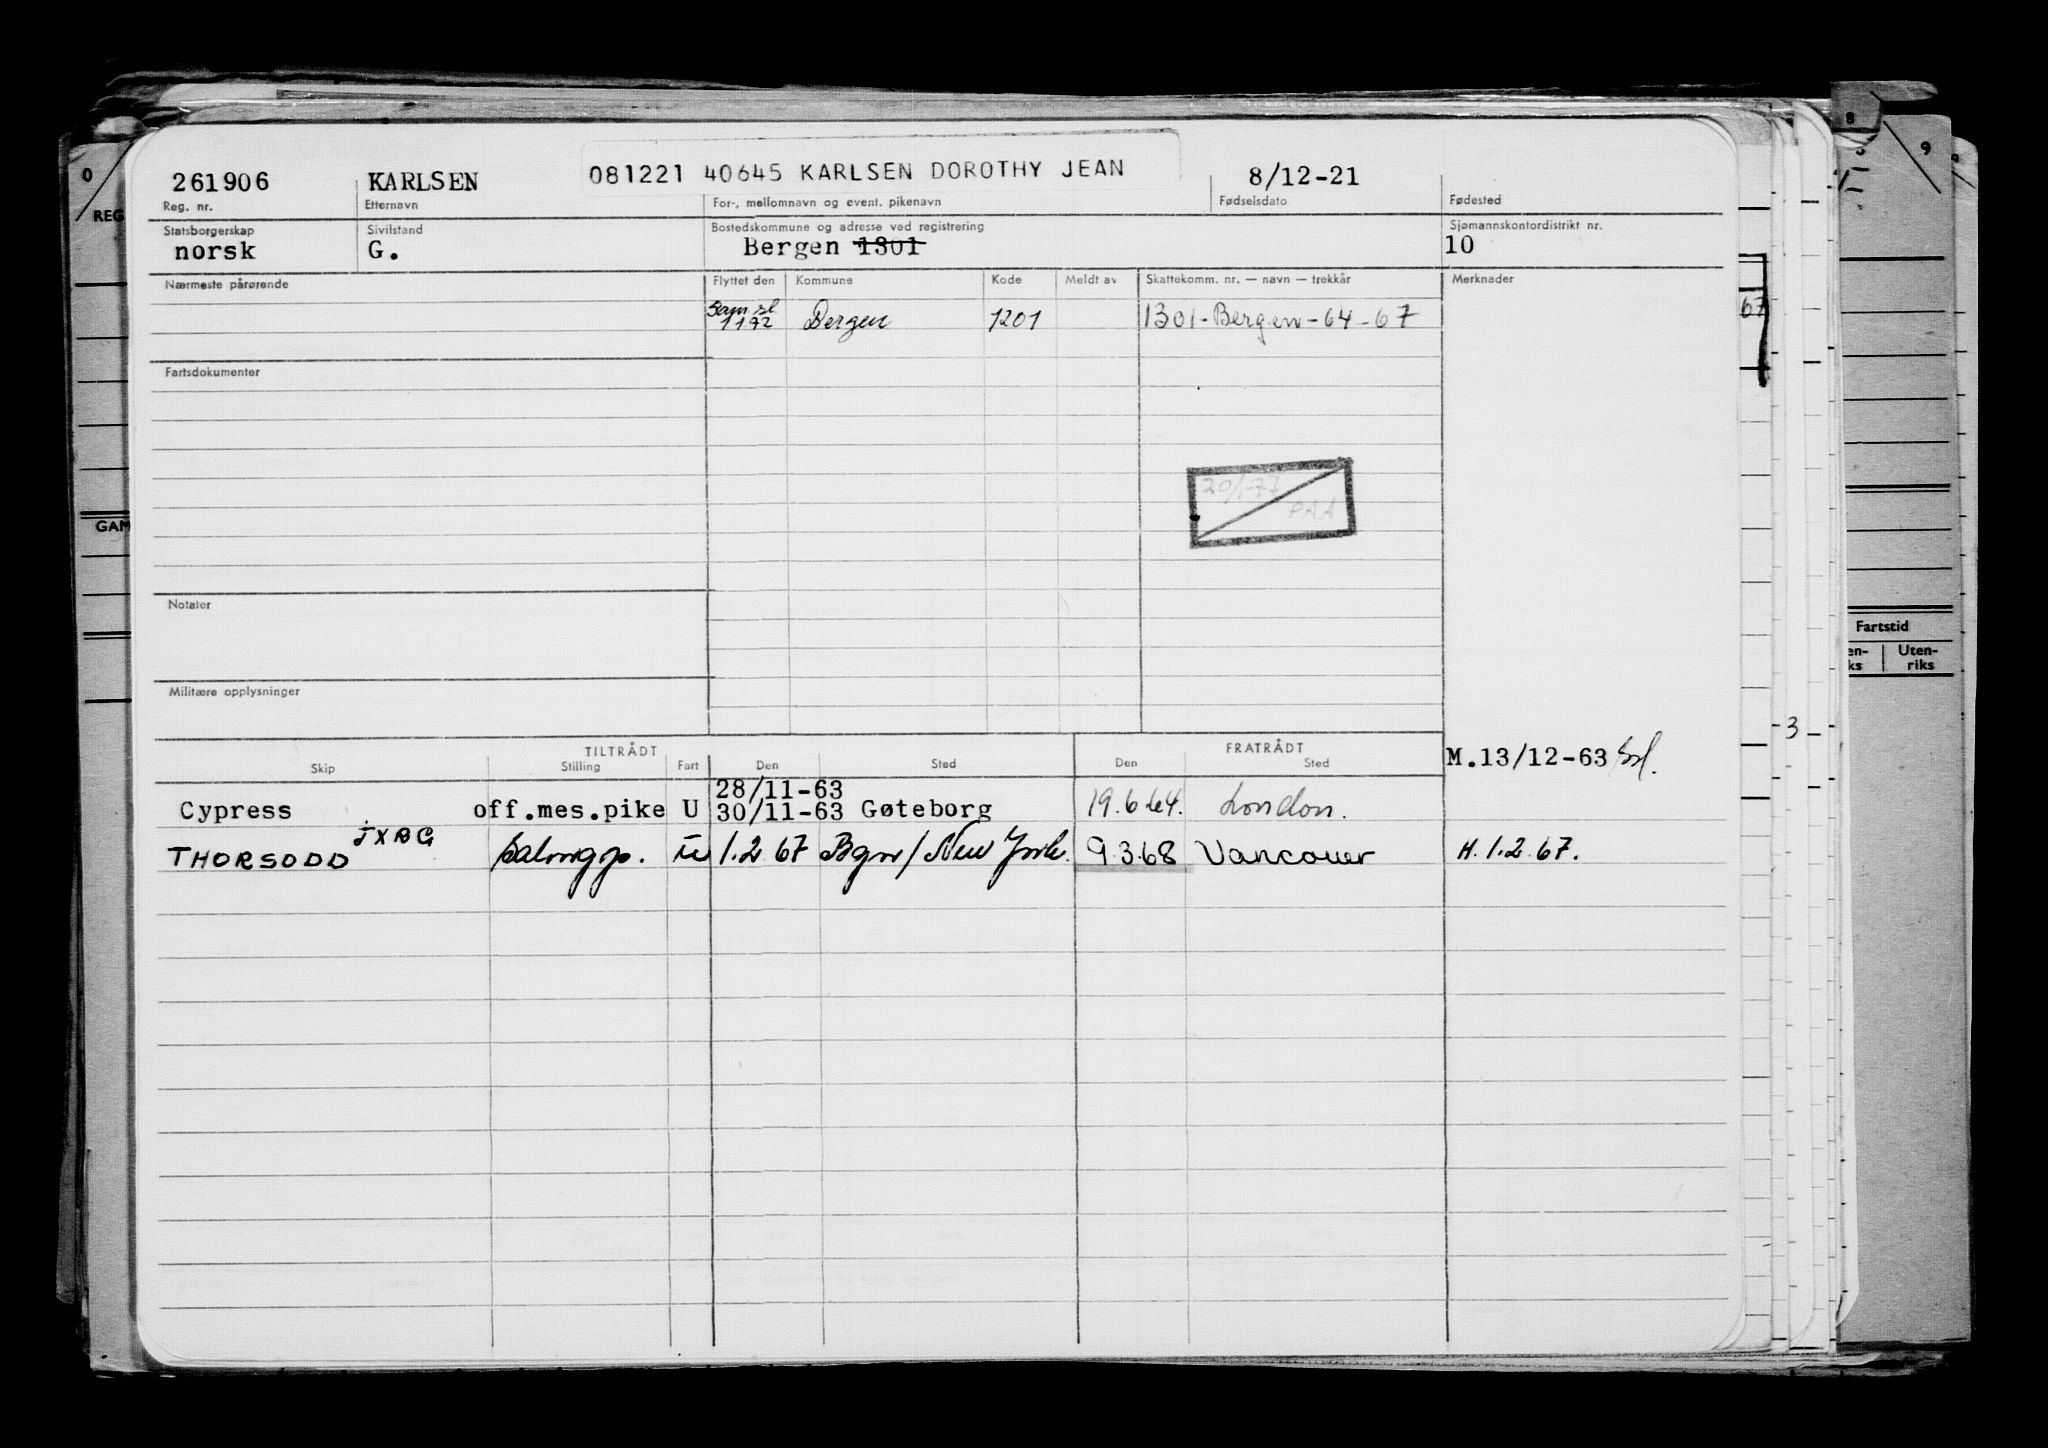 261906 KARLSEN 081221 40645 KARLSEN DOROTHY JEAN 8/12-21
Reg. nr. Etternavn For-, mellomnavn og event. pikenavn Fødselsdato Fødested
Statsborgerskap Sivilstand Bostedskommune og adresse ved registrering Sjømannskontordistrikt nr.
norsk G. Bergen 1301 10
Nærmeste pårørende Flyttet den Kommune Kode Meldt av Skattekomm. nr. — navn — trekkår Merknader
1172 Bergen 1201 1301-Bergen-64-67
Fartsdokumenter
20/1-77
PAA
Notater
Militære opplysninger
TILTRÅDT FRATRÅDT
Skip Stilling Fart Den Sted Den Sted
M.13/12-63
28/11-63
Cypress off.mes.pike U 30/11-63 Gøteborg 19.6.64. London.
THORSODD JXBG Salongp. U 1.2 67 Bgn/New York. 9.3.68 Vancouver H.1.2.67.
0
REG
GAM
67
3
8
9
Fartstid
en-
ks
Uten-
riks